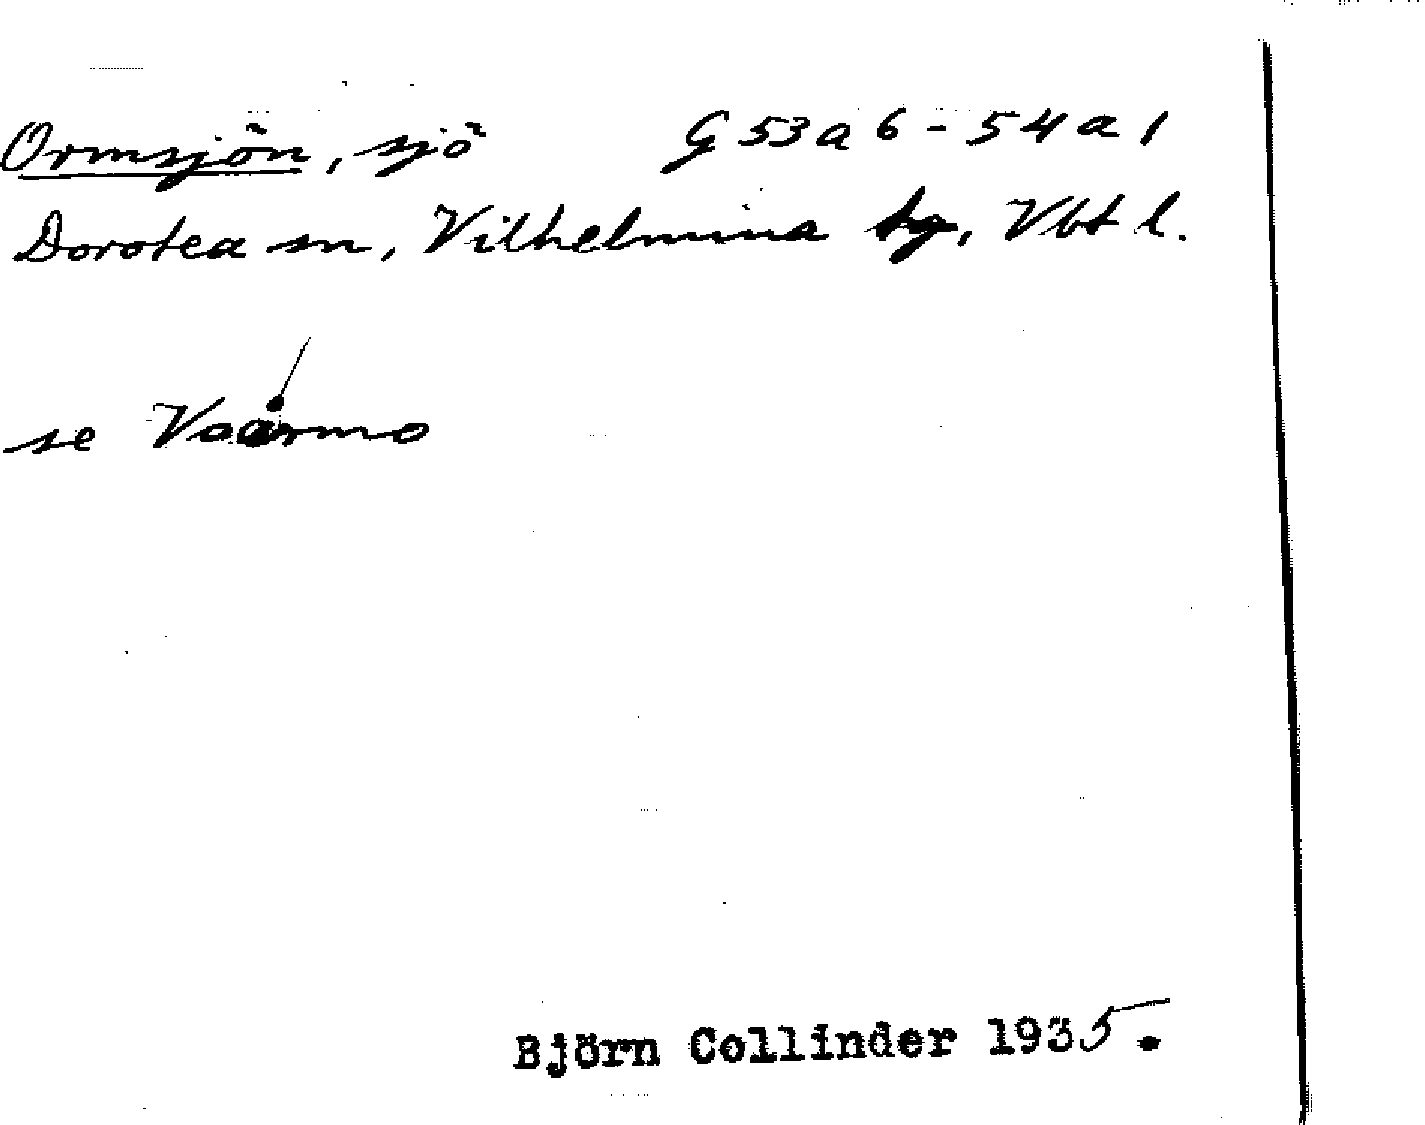 Ormsjön, sjö G 53 a 6 - 54 a 1
Dorotea sn, Vilhelmina tg, Vbt l.
se Voårmo
Björn Collinder 1935.